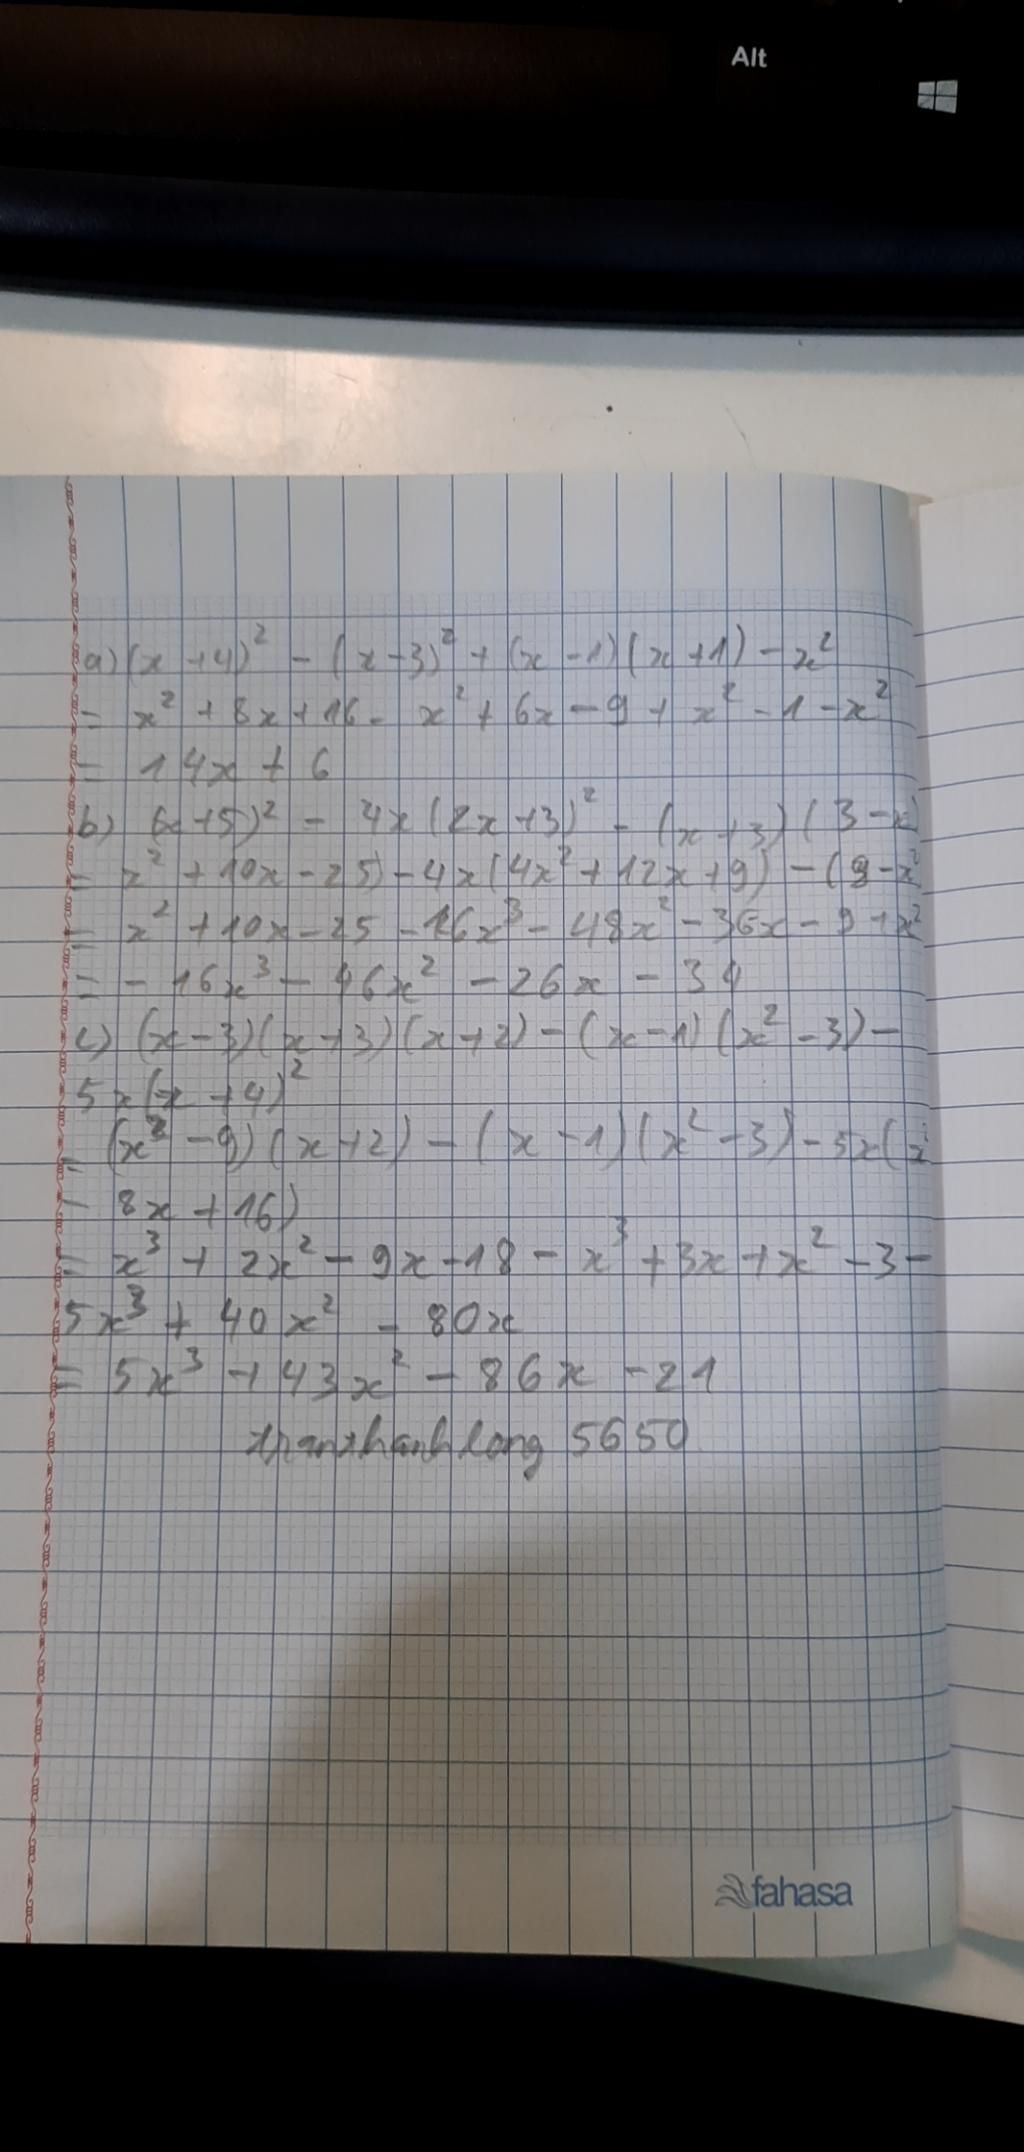 Alt
a) (x+4)² - (x-3)² + (x-1)(x+1) - x²
= x² + 8x + 16 - x² + 6x - 9 + x² - 1 - x²
= 14x + 6
b) (x+5)² - 4x(2x+3)² - (x+3)(3-x)
= x² + 10x - 25) - 4x(4x² + 12x + 9) - (9-x²
= x² + 10x - 25 - 16x³ - 48x² - 36x - 9 + x²
= - 16x³ - 46x² - 26x - 34
c) (x-3)(x+3)(x+2) - (x-1)(x² - 3) -
5x(-x+4)²
= (x² - 9)(x+2) - (x-1)(x² - 3) - 5x(x²
- 8x + 16)
= x³ + 2x² - 9x - 18 - x³ + 3x + x² - 3 -
5x³ + 40x² - 80x
= 5x³ + 43x² - 86x - 21
tranthanhlong 5650
fahasa